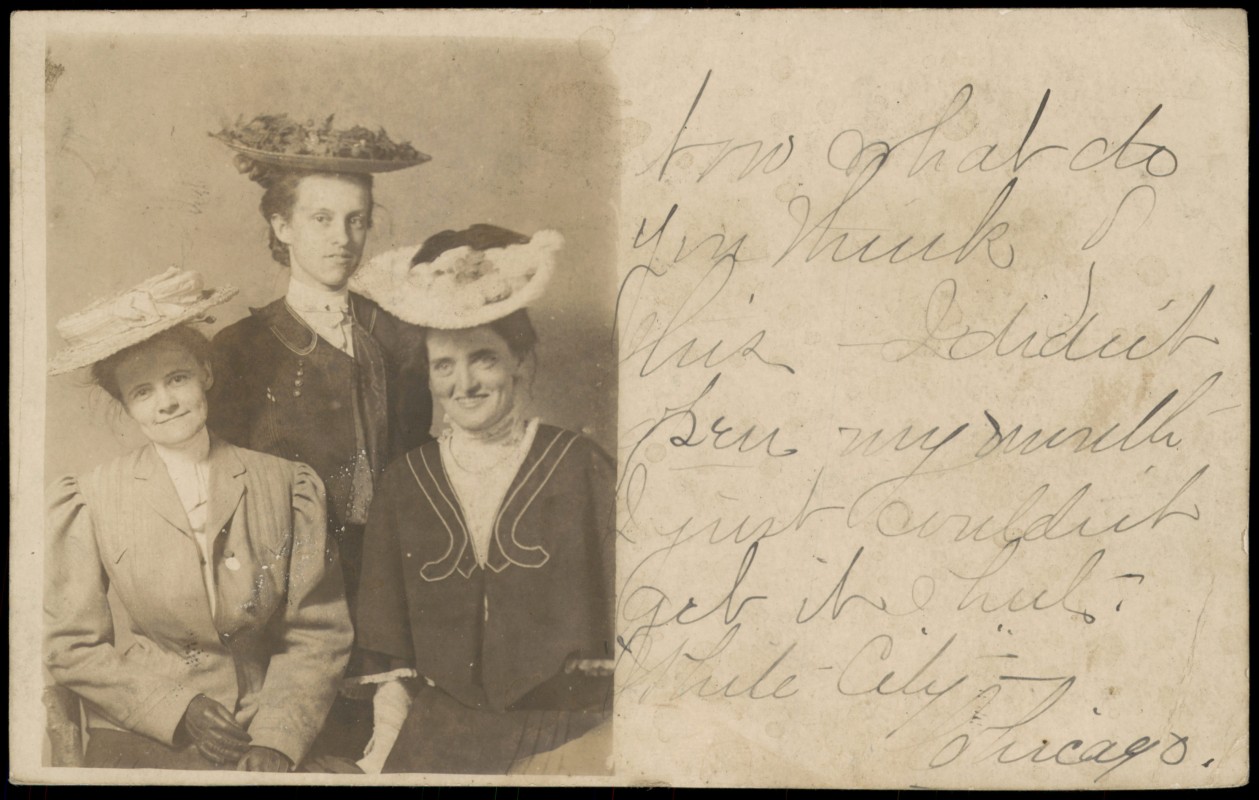 now what do
you think of
this - I didn't
open my mouth
I just couldn't
get it shut.
White City -
Chicago.